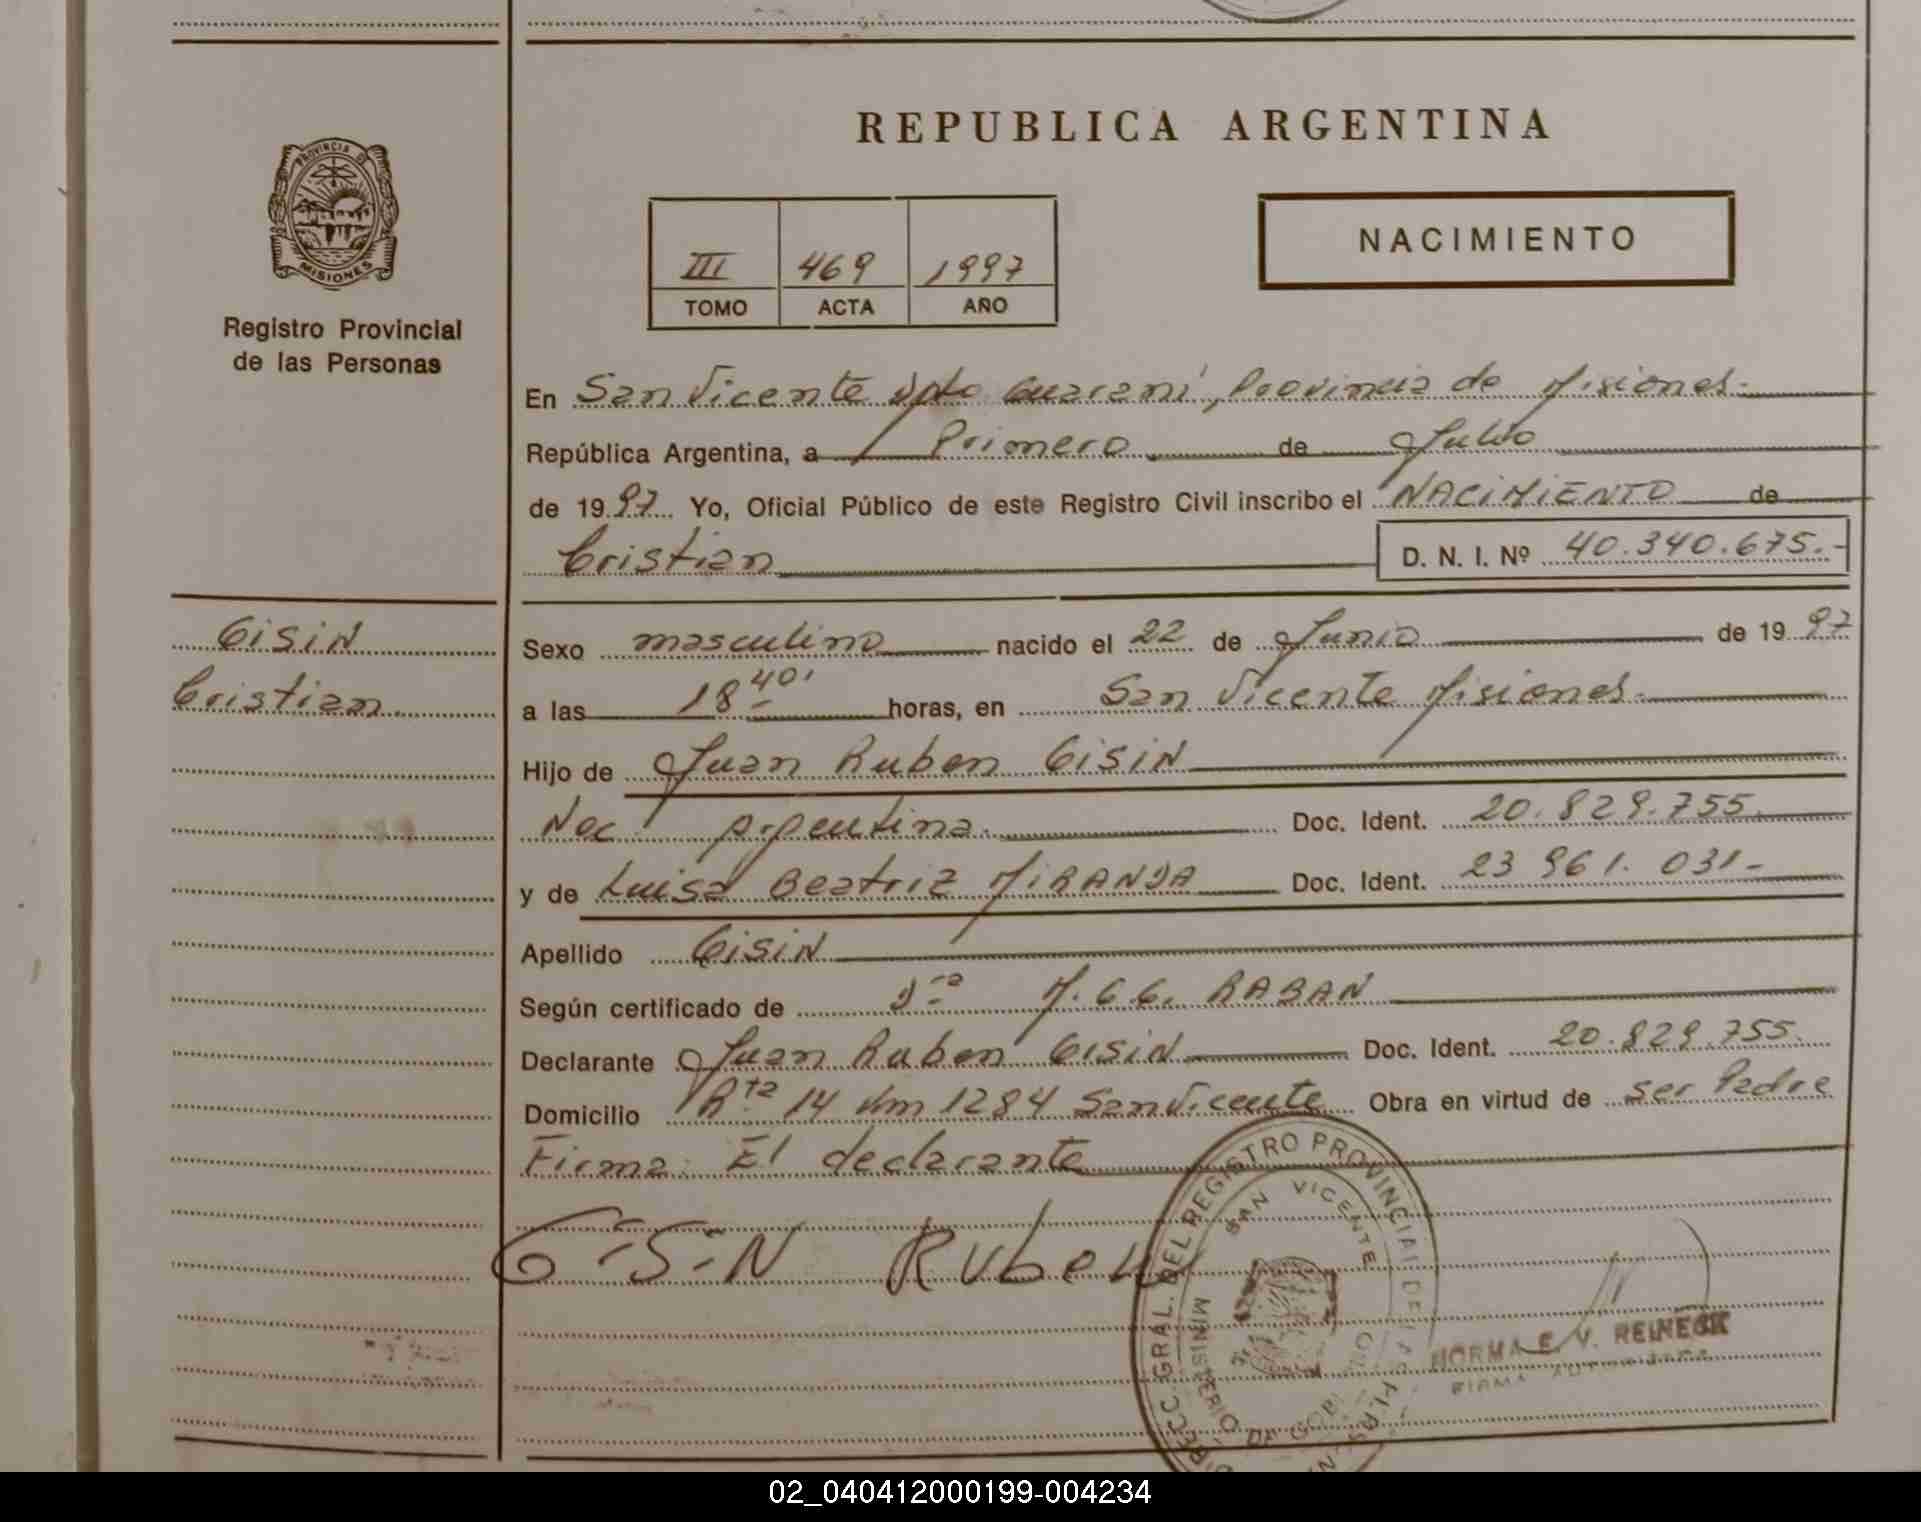 REPUBLICA ARGENTINA
PROVINCIA DE
MISIONES
Registro Provincial
de las Personas
III 469 1997
TOMO ACTA AÑO
NACIMIENTO
En San Vicente Dpto Guaraní, Provincia de Misiones.-
República Argentina, a Primero de Julio
de 1997 Yo, Oficial Público de este Registro Civil inscribo el NACIMIENTO de
Cristian D. N. I. Nº 40.340.675.-
GISIN
Cristian.
Sexo masculino nacido el 22 de Junio de 1997
a las 18 40' horas, en San Vicente Misiones.-
Hijo de Juan Ruben GISIN
Nac. Argentina. Doc. Ident. 20.829.755.
y de Luisa Beatriz MIRANDA Doc. Ident. 23 961. 031-
Apellido GISIN
Según certificado de Dra M. G. G. RABAN
Declarante Juan Ruben GISIN Doc. Ident. 20.829.755.
Domicilio Rta 14 Km 1284 San Vicente Obra en virtud de ser Padre
Firma: El declarante
GISIN RUBEN
DIRECC. GRAL. DEL REGISTRO PROVINCIAL DE LAS
SAN VICENTE
MINISTERIO DE GOB
NORMA E. V. REINECK
FIRMA AUTORIZADA
02_040412000199-004234